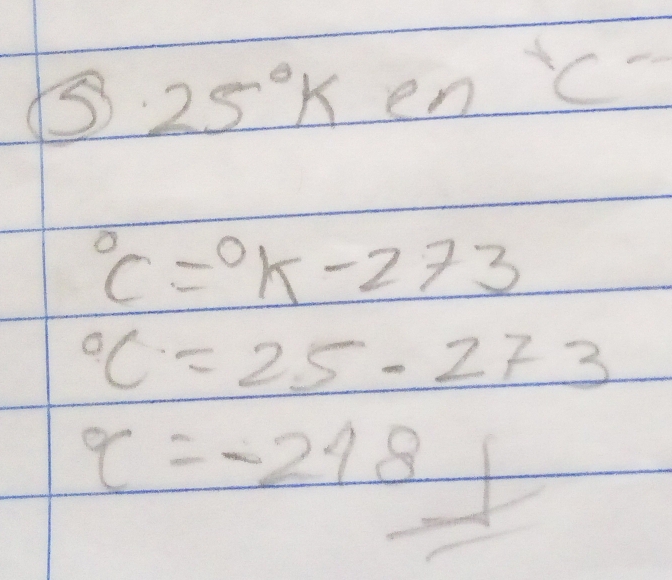 ⑤ 25°K en °C
°C = °K - 273
°C = 25 - 273
°C = -248